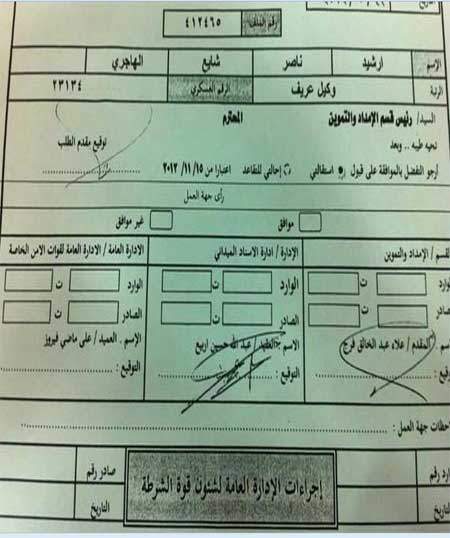 التاريخ
رقم الملف
٤١٢٤٦٥
الإسم ارشيد ناصر شايع الهاجري
الرتبة وكيل عريف الرقم العسكري ٢٣١٣٤
السيد / رئيس قسم الإمداد والتموين المحترم
تحيه طيبه .. وبعد توقيع مقدم الطلب
أرجو التفضل بالموافقة على قبول استقالتي إحالتي للتقاعد اعتبارا من ١٥ / ١١ / ٢٠١٢
رأى جهة العمل
موافق غير موافق
القسم / الإمداد والتموين الإدارة / ادارة الاسناد الميداني الادارة العامة / الادارة العامة لقوات الامن الخاصة
الوارد ت الوارد ت الوارد ت
الصادر ت الصادر ت الصادر ت
المقدم / علاء عبد الخالق فرج الاسم : العقيد / عبد الله حسين اربع الإسم . العميد / على ماضي فيروز
التوقيع : التوقيع : التوقيع :
ملاحظات جهة العمل :
إجراءات الإدارة العامة لشئون قوة الشرطة
وارد رقم صادر رقم
التاريخ التاريخ